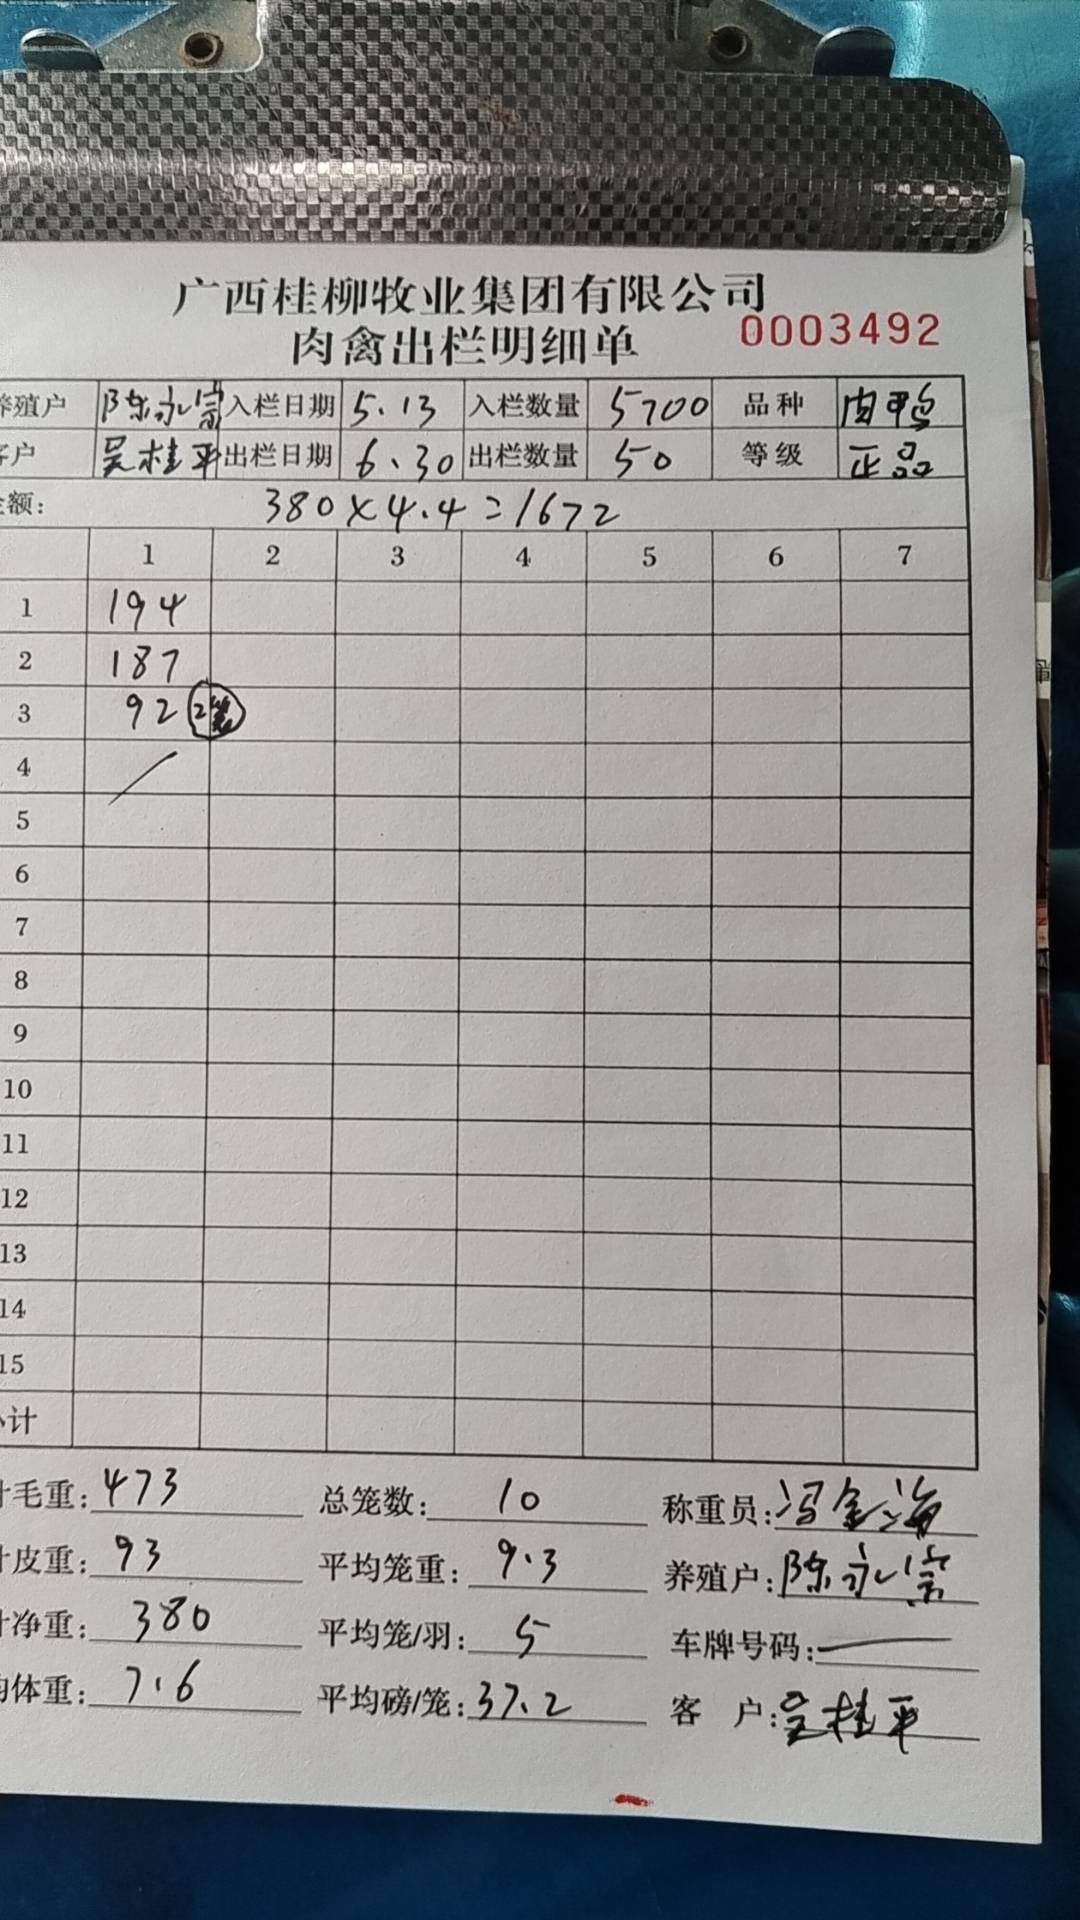 广西桂柳牧业集团有限公司
肉禽出栏明细单 0003492
养殖户 陈永崇 入栏日期 5.13 入栏数量 5700 品种 肉鸭
客户 吴桂平 出栏日期 6.30 出栏数量 50 等级 正品
金额: 380×4.4=1672
1 2 3 4 5 6 7
1 194
2 187
3 92 2笼
4
5
6
7
8
9
10
11
12
13
14
15
小计
计毛重: 473 总笼数: 10 称重员: 冯金海
计皮重: 93 平均笼重: 9.3 养殖户: 陈永崇
计净重: 380 平均笼/羽: 5 车牌号码: —
均体重: 7.6 平均磅/笼: 37.2 客 户: 吴桂平